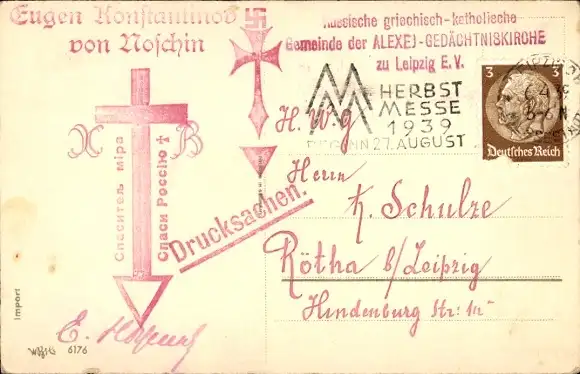 Eugen Konstantinos
von Noschin
Russische griechisch-katholische
Gemeinde der ALEXEJ-GEDÄCHTNISKIRCHE
zu Leipzig E.V.
MM HERBST
MESSE
1939
BEGINN 27. AUGUST
LEIPZIG
3 3
Deutsches Reich
H. W. G
Х В
Спаситель міра
Спаси Россію
Drucksachen.
Herrn
K. Schulze
Rötha b/Leipzig
Hindenburg Str:
E.
Import
6176